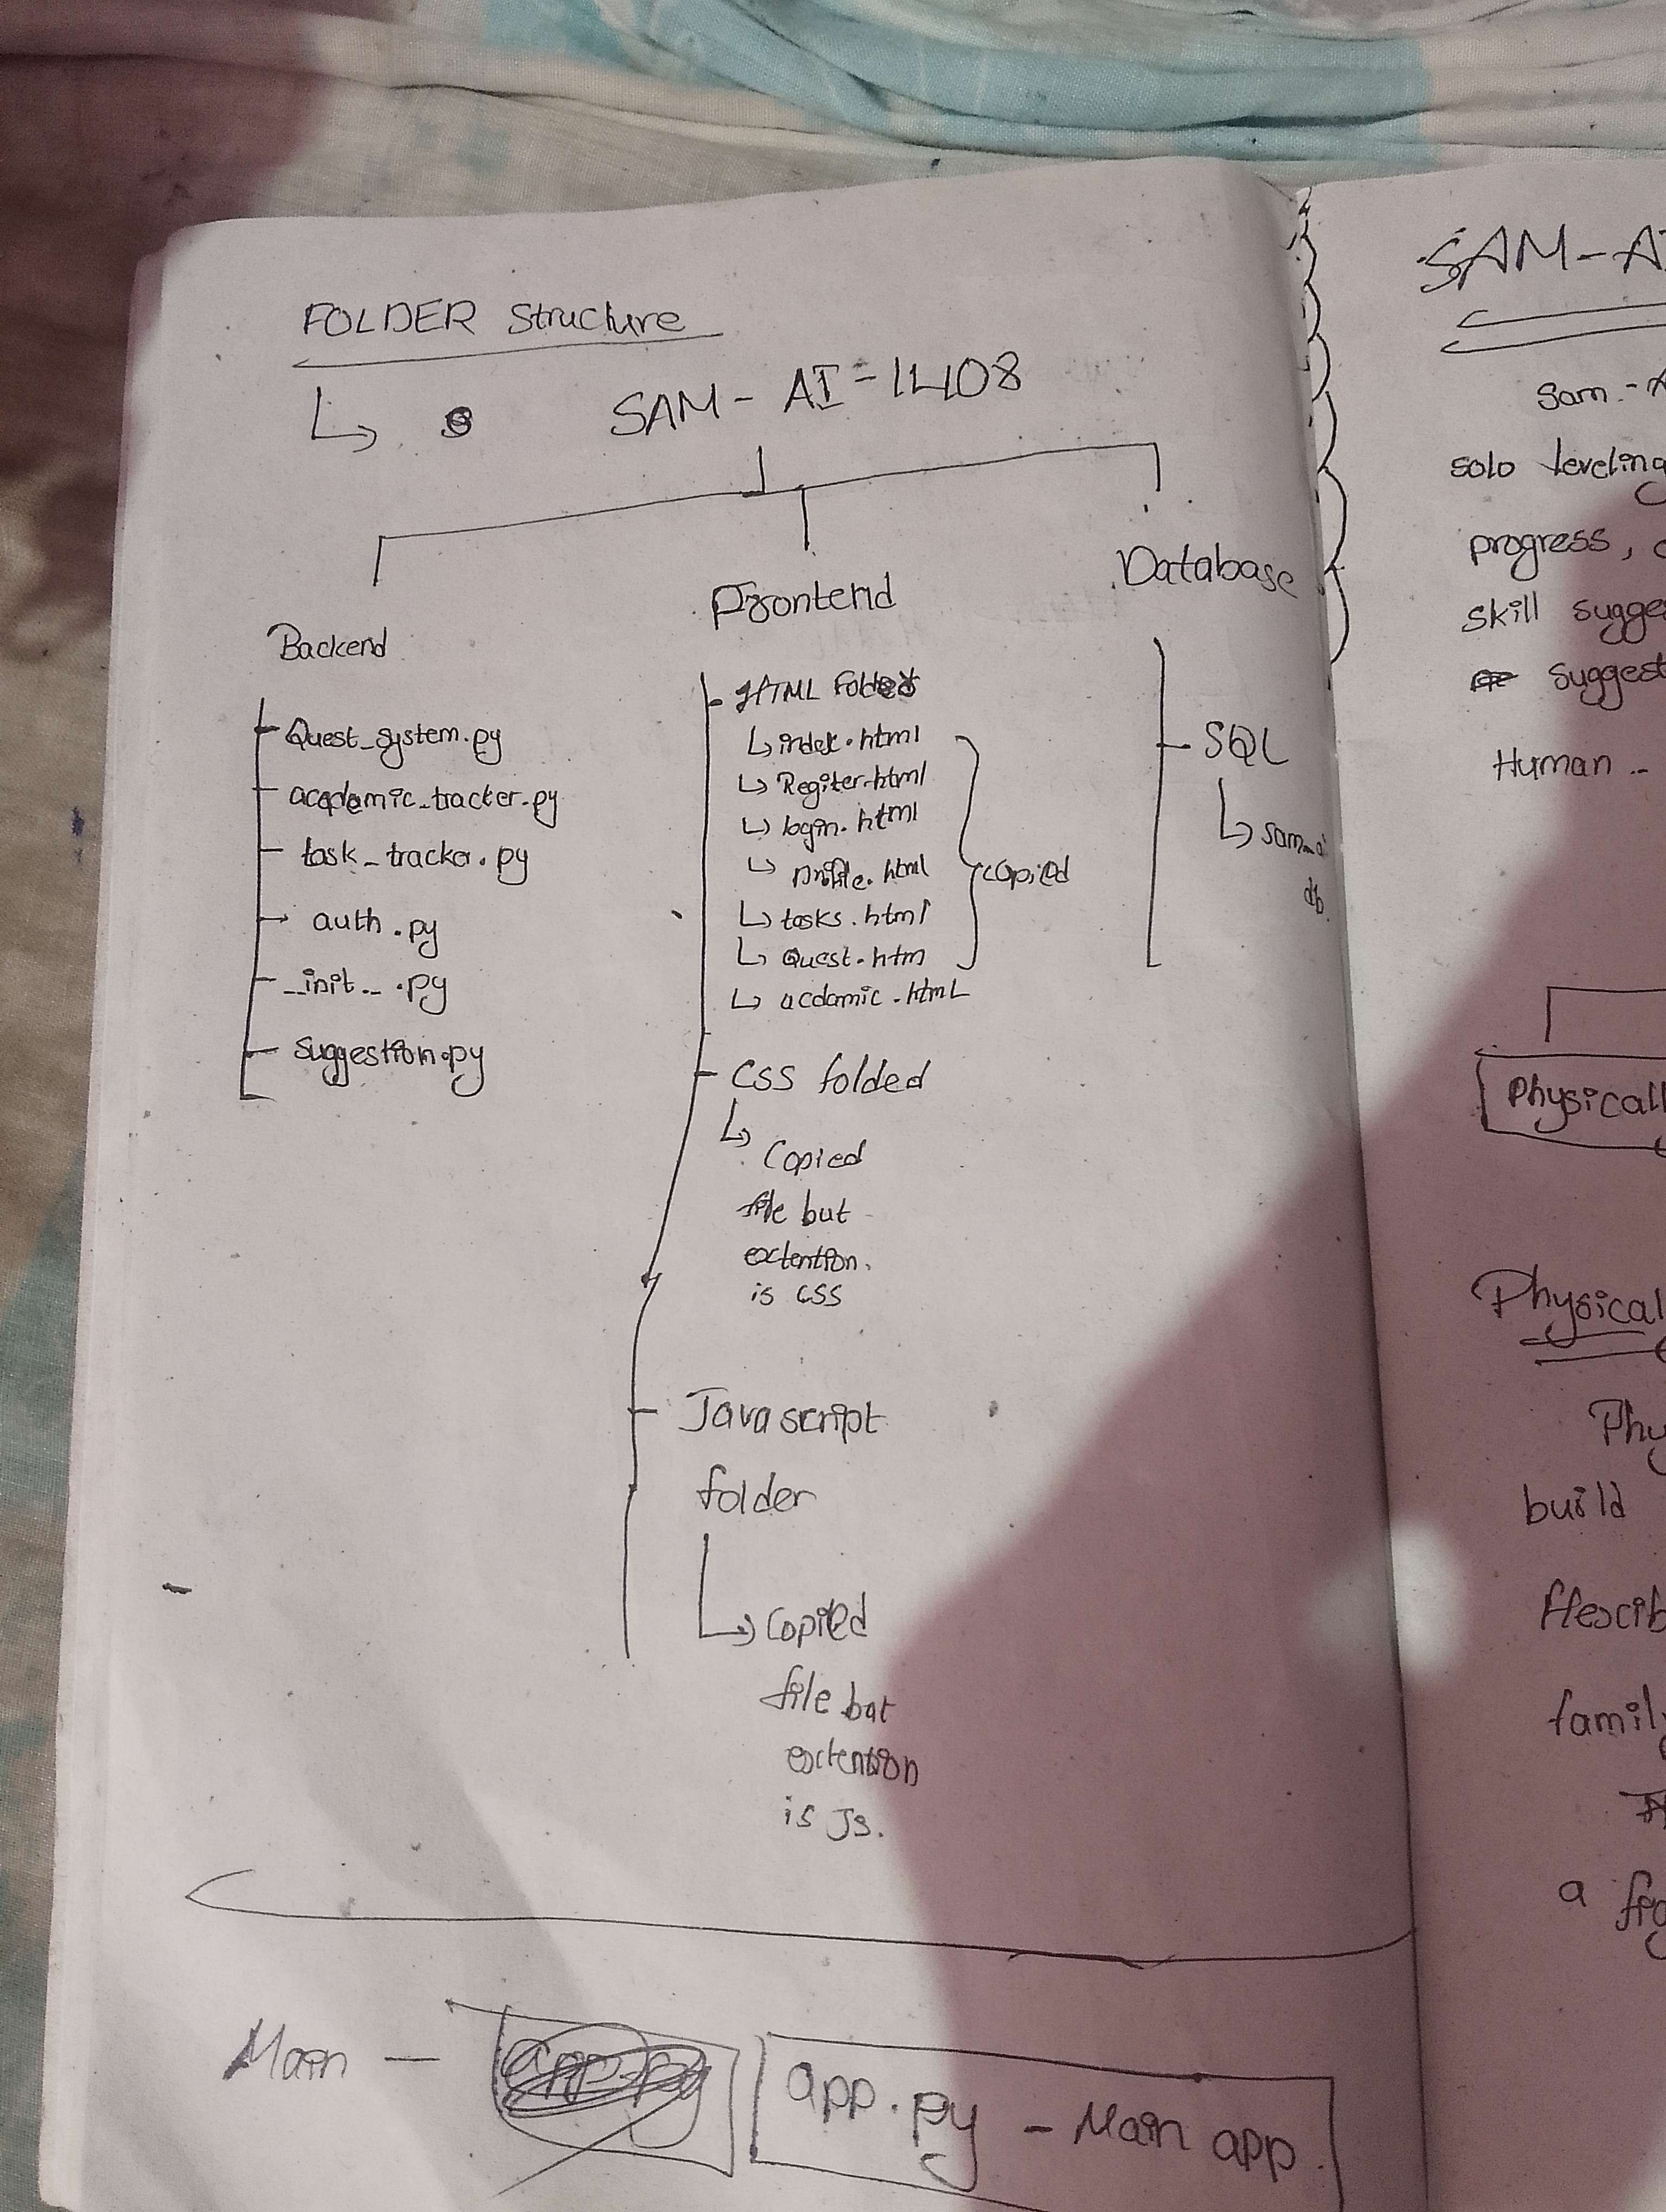 FOLDER Structure
SAM - AI - 1408
Backend
Quest_system.py
acadamic_tracker.py
task_tracker.py
auth.py
__init__.py
suggestion.py
Frontend
HTML Folded
index.html
Regiter.html
login.html
profile.html
tasks.html
Quest.htm
acdamic.html
copied
CSS folded
Copied
file but
extention.
is CSS
Javascript
folder
Copied
file but
extention
is JS.
Database
SQL
sam_ai
db.
Main — app.py
app.py - Main app.
SAM-AI
Sam-A
solo leveling
progress,
skill sugges
suggest
Human -
Physicall
Physical
Phy
build
flexib
famil
a